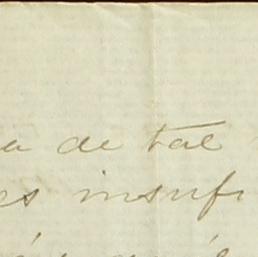 a de tal
es insufi